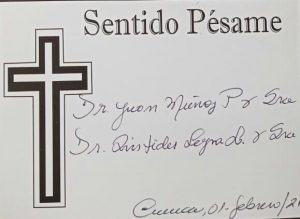 Sentido Pésame
Dr. Juan Muñoz P y Sra
Dr. Aristides Legña L. y Sra
Cuenca, 01. febrero/21